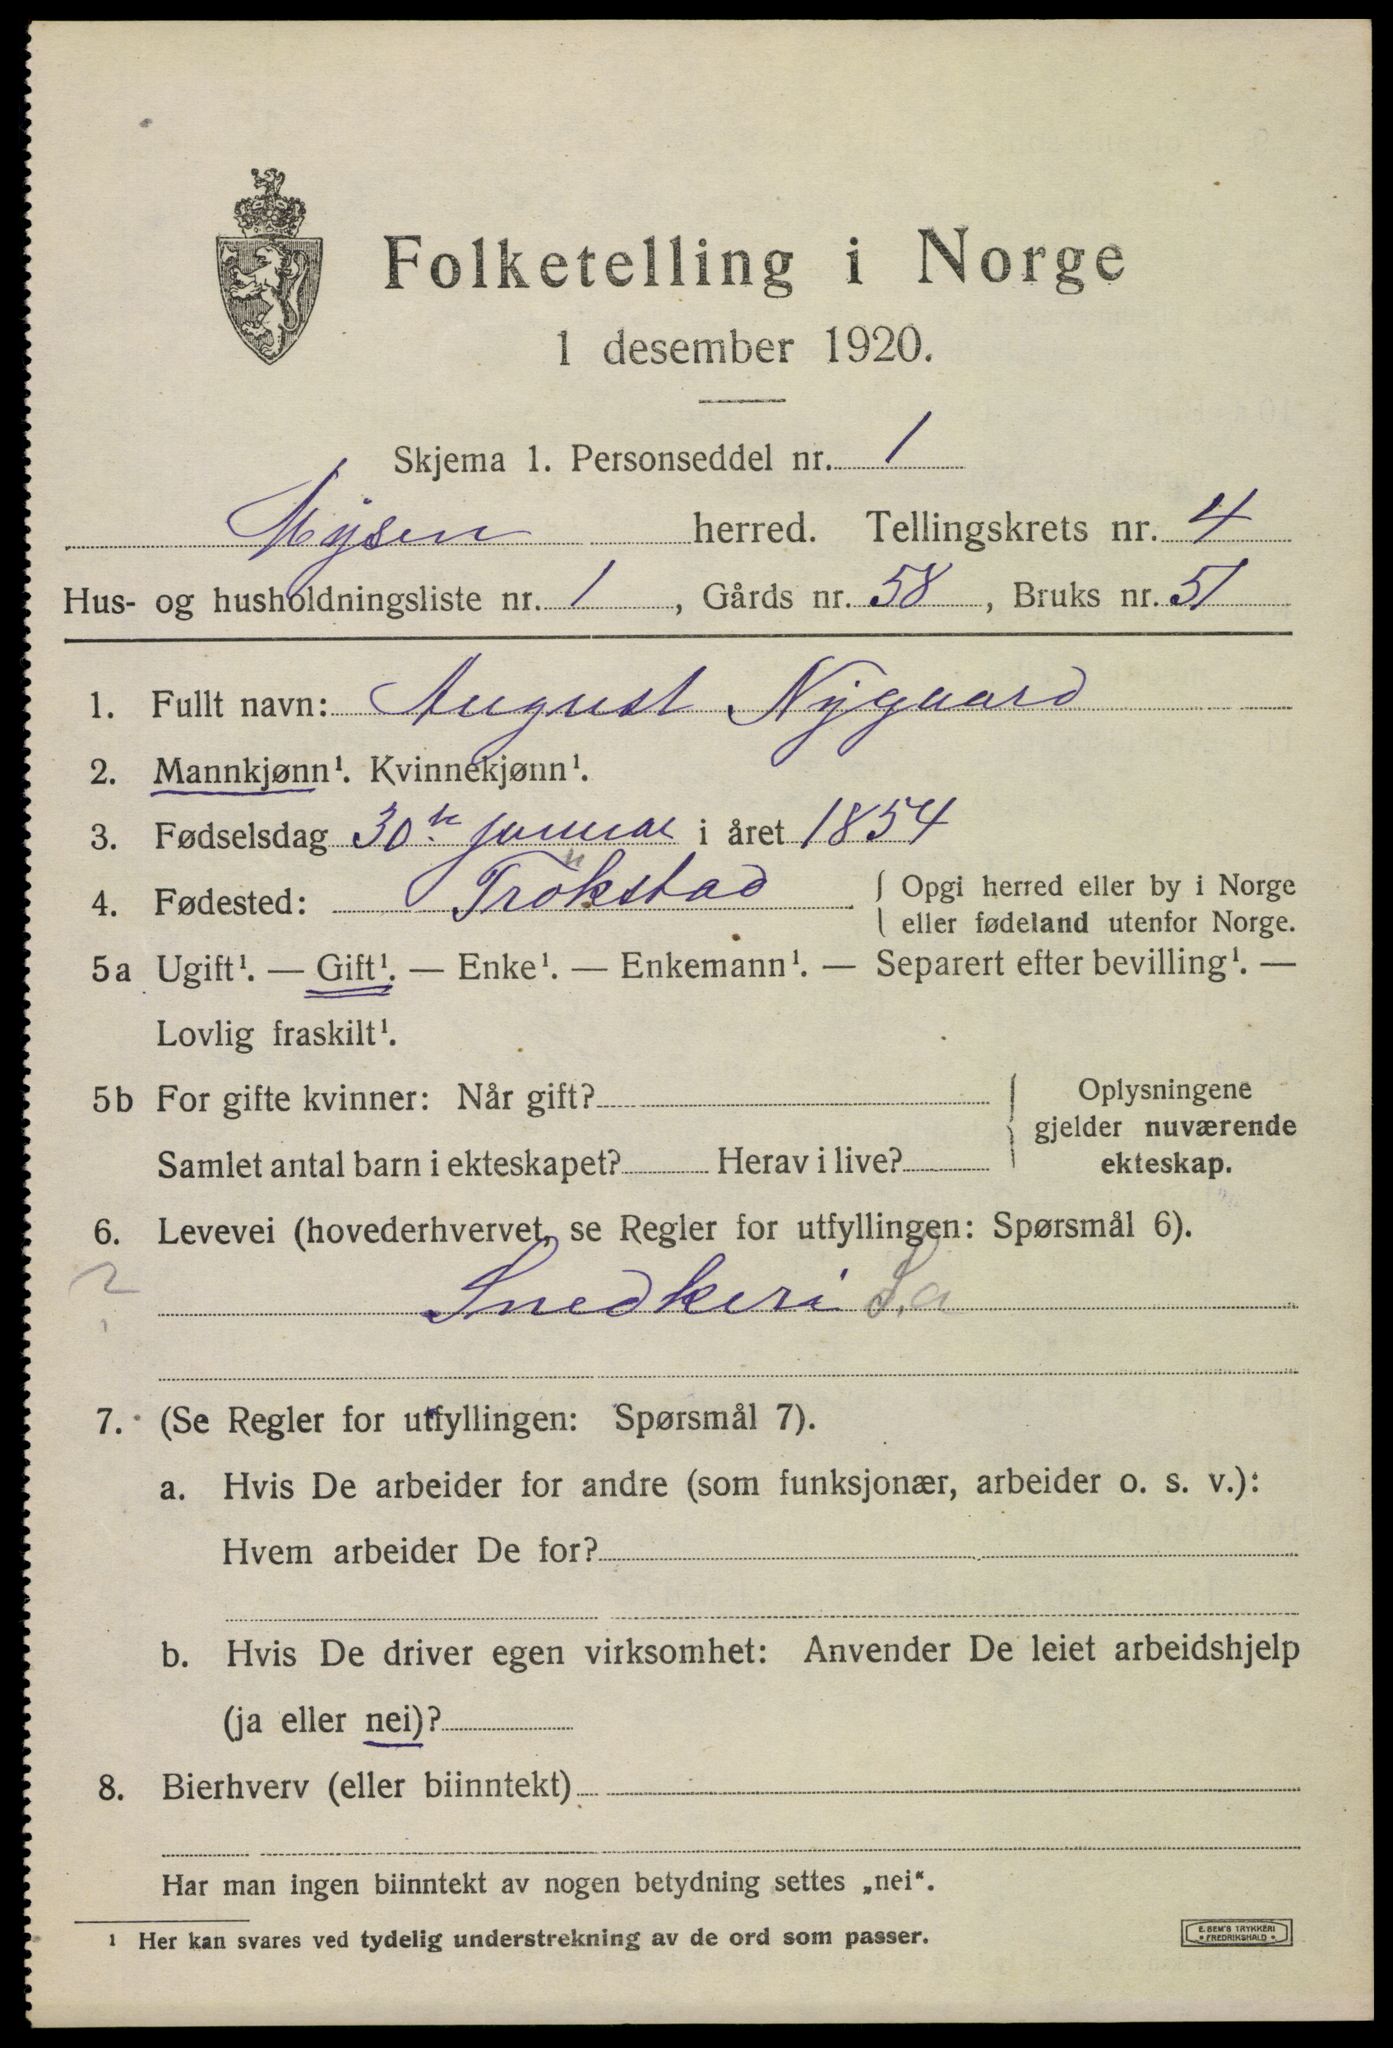 Folketelling i Norge
1 desember 1920.
Skjema 1. Personseddel nr. 1
Mysen herred. Tellingskrets nr. 4
Hus- og husholdningsliste nr. 1, Gårds nr. 58, Bruks nr. 51
1. Fullt navn: August Nygaard
2. Mannkjønn¹. Kvinnekjønn¹.
3. Fødselsdag 30te januar i året 1854
4. Fødested: Trökstad { Opgi herred eller by i Norge
eller fødeland utenfor Norge.
5a Ugift¹. — Gift¹. — Enke¹. — Enkemann¹. — Separert efter bevilling¹. —
Lovlig fraskilt¹.
5b For gifte kvinner: Når gift? } Oplysningene
gjelder nuværende
ekteskap.
Samlet antal barn i ekteskapet? Herav i live?
6. Levevei (hovederhvervet, se Regler for utfyllingen: Spørsmål 6).
2 Snedkeri S.a
7. (Se Regler for utfyllingen: Spørsmål 7).
a. Hvis De arbeider for andre (som funksjonær, arbeider o. s. v.):
Hvem arbeider De for?
b. Hvis De driver egen virksomhet: Anvender De leiet arbeidshjelp
(ja eller nei)?
8. Bierhverv (eller biinntekt)
Har man ingen biinntekt av nogen betydning settes „nei“.
¹ Her kan svares ved tydelig understrekning av de ord som passer.
E. SEM'S TRYKKERI
• FREDRIKSHALD •